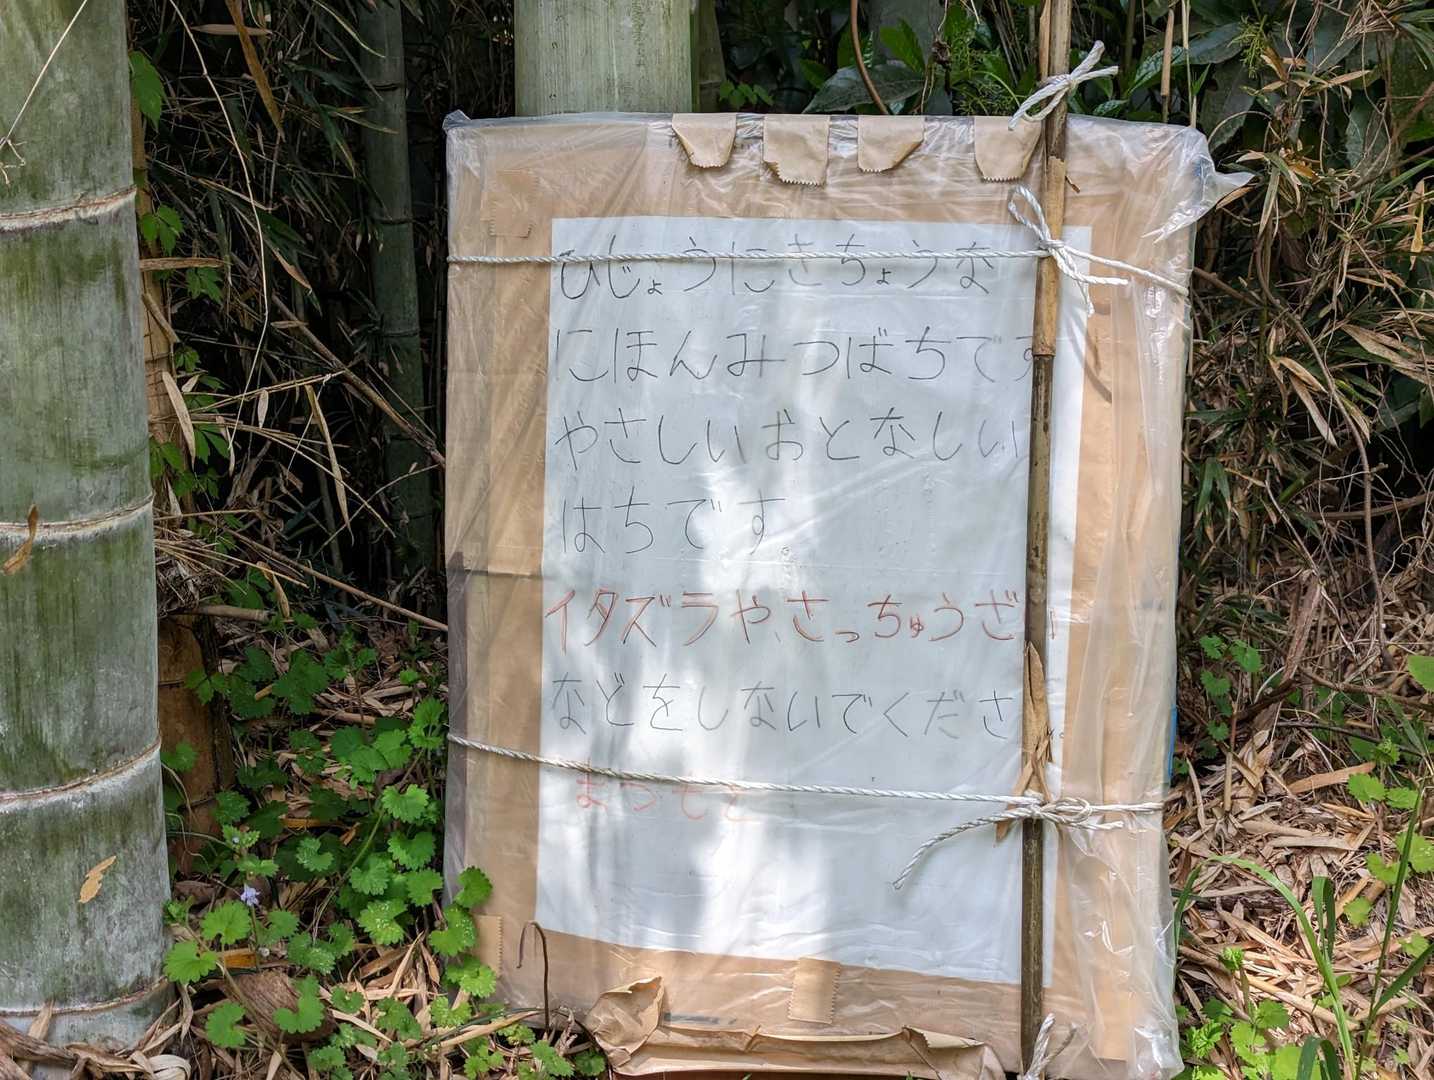 ひじょうにきちょうな
にほんみつばちです
やさしいおとなしい
はちです。
イタズラや、さっちゅうざい
などをしないでくださ。
まつもと